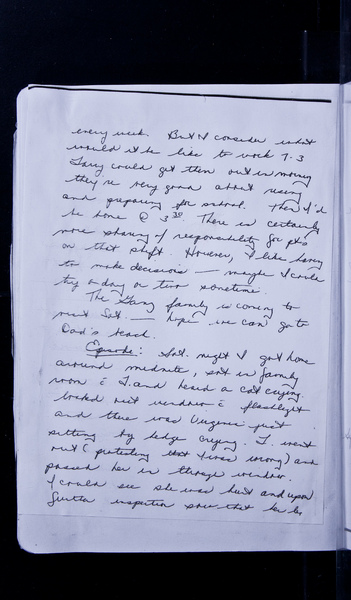 every week. But I consider what
would it be like to work 7-3
Larry could get them out in morning
they're very good about rising
and preparing for school. Then I'd
be home @ 3³⁰. There is certainly
more sharing of responsibility for pts
on that shift. However, I like having
to make decisions — maybe I could
try a day or two sometime.
The family is coming to
visit Sat. — hope we can go to
Dad's beach.
Episode: Sat. night I got home
around midnite, sat in family
room c̄ L. and heard a cat crying.
looked out window c̄ flashlight
and there was Virginia just
sitting by ledge crying. L. went
out (protesting that I was wrong) and
passed her in through window.
I could see she was hurt and upon
further inspection saw that her